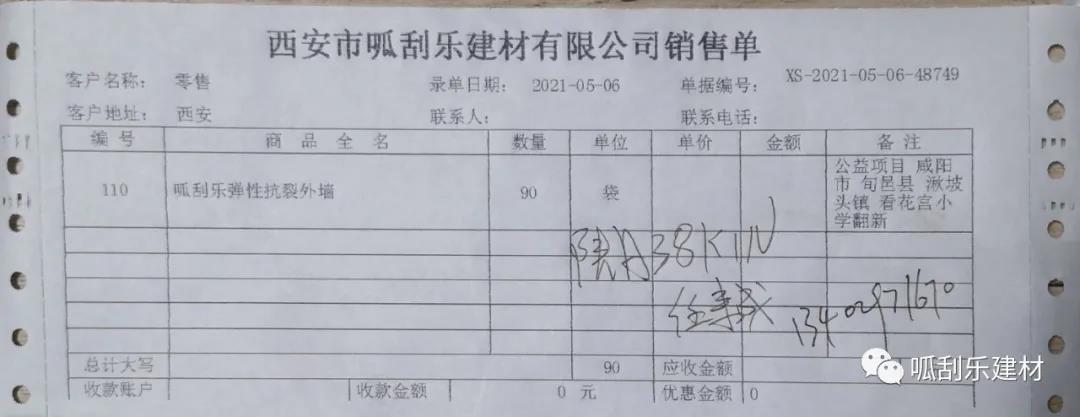 西安市呱刮乐建材有限公司销售单
客户名称： 零售 录单日期： 2021-05-06 单据编号： XS-2021-05-06-48749
客户地址： 西安 联系人： 联系电话：
编号 商品全名 数量 单位 单价 金额 备注
110 呱刮乐弹性抗裂外墙 90 袋 公益项目 咸阳
市 旬邑县 湫坡
头镇 看花宫小
学翻新
陕A38K1N
任 13402971670
总计大写 90 应收金额
收款账户 收款金额 0 元 优惠金额 0
呱刮乐建材